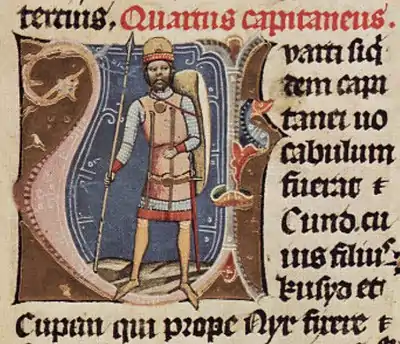 tercius. Quartus capitaneus.
uarti siq
dem capi
tanei uo
cabulum
fuerat ⁊
Cund. cu
ius filius
kusyd et
Cupan qui prope Nyr fuere ⁊